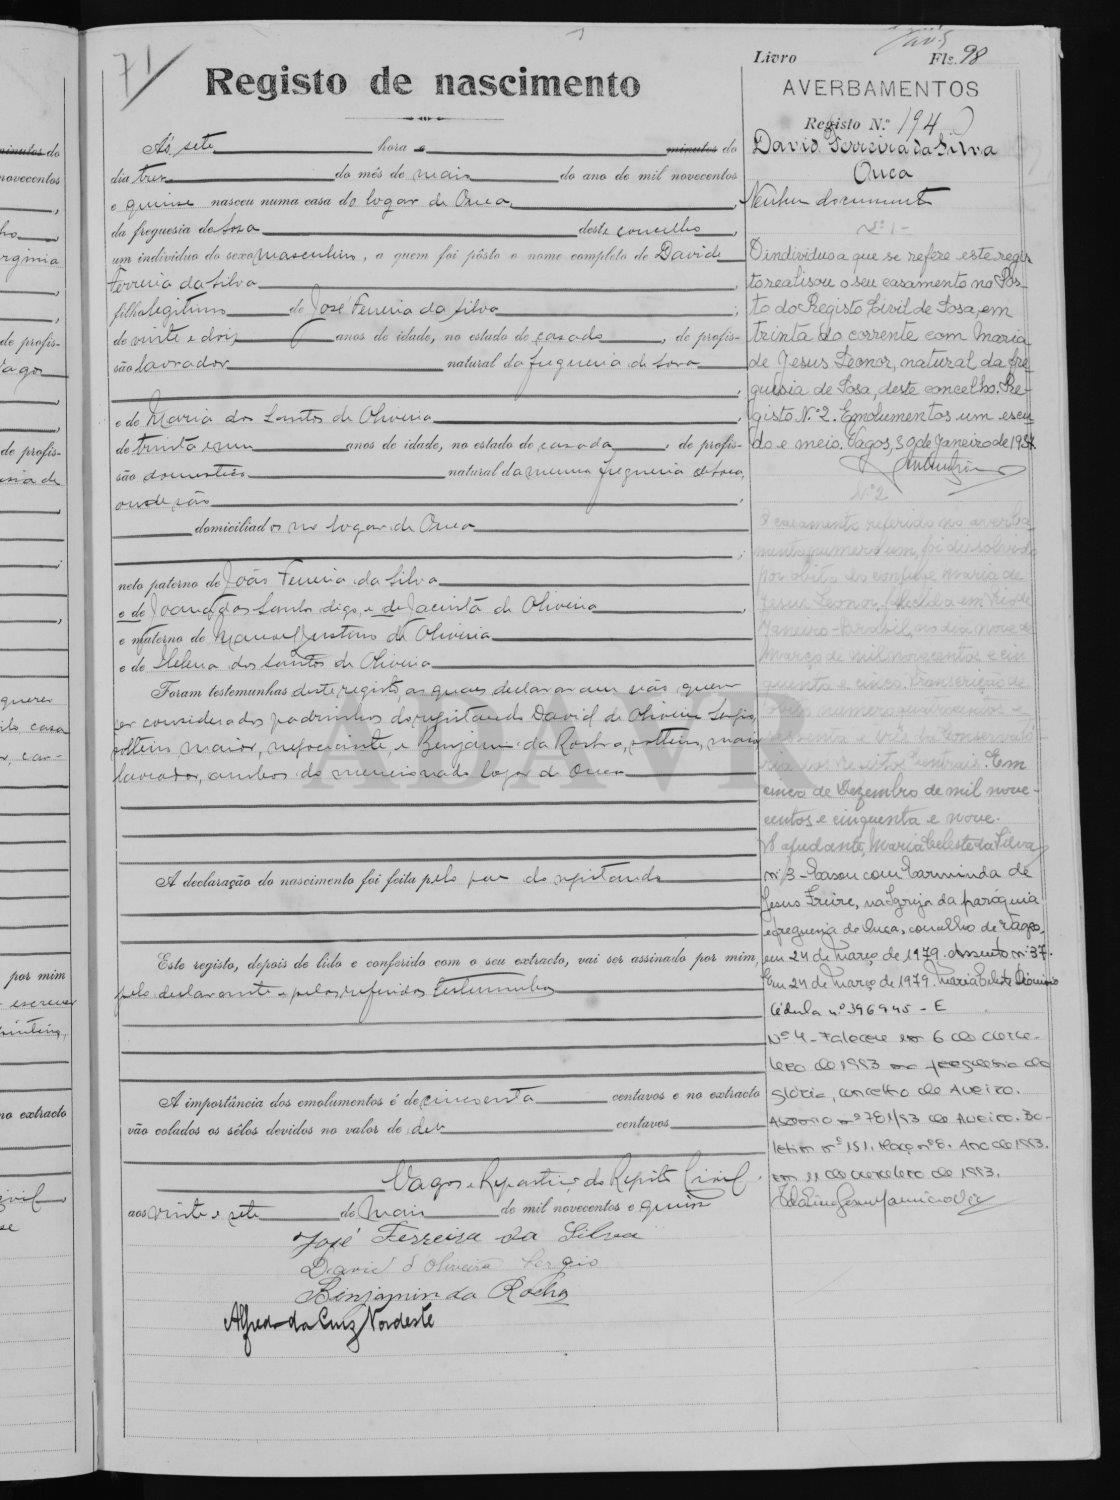 71
Registo de nascimento
Ás sete hora e minutos do
dia tres do mês de maio do ano de mil novecentos
e quinse nasceu numa casa do logar de Ouca,
da freguesia de Sosa deste concelho,
um individuo do sexo masculino, a quem foi pôsto o nome completo de David
Ferreira da Silva
filho legitimo de José Ferreira da Silva;
de vinte e dois anos de idade, no estado de casado, de profis-
são lavrador natural da freguesia de Sosa
e de Maria dos Santos de Oliveira,
de trinta e um anos de idade, no estado de casada, de profis-
são domestica natural da mesma freguesia de Sosa,
onde são
domiciliados no logar de Ouca
neto paterno de João Ferreira da Silva
e de Joana dos Santos digo, e de Jacinta de Oliveira,
e materno de Manoel Justino de Oliveira
e de Helena dos Santos de Oliveira
Foram testemunhas deste registo, as quaes declararam não querer
ser considerados padrinhos do registando David de Oliveira Sergio,
solteiro, maior, negociante, e Benjamin da Rocha, solteiro, maior
lavrador, ambos do mencionado logar de Ouca
A declaração do nascimento foi feita pelo pae do registando
Este registo, depois de lido e conferido com o seu extracto, vai ser assinado por mim,
pelo declarante e pelas referidas testemunhas
A importância dos emolumentos é de cincoenta centavos e no extracto
vão colados os sêlos devidos no valor de dez centavos
Vagos e Repartição do Registo Civil
aos vinte e sete de Maio de mil novecentos e quinze
José Ferreira da Silva
David d'Oliveira Sergio
Benjamin da Rocha
Alfredo da Cruz Nordeste
Livro Fls. 98
AVERBAMENTOS
Registo N.º 194
David Ferreira da Silva
Ouca
Nenhum documento
Nº 1-
O individuo a que se refere este regis
to realisou o seu casamento no Pos-
to do Registo Civil de Sosa, em
trinta do corrente com Maria
de Jesus Leonor, natural da fre
guesia de Sosa, deste concelho. Re-
gisto N.º 2. Emolumentos um escu
do e meio. Vagos, 30 de Janeiro de 1937.
Nº 2
O casamento referido no averba-
mento numero um, foi dissolvido
por obito do conjuge Maria de
Jesus Leonor, falecida em Rio de
Janeiro-Brasil, no dia nove de
Março de mil novecentos e cin
quenta e cinco. Transcrição de
obito numero quatrocentos e
sessenta e três da Conservató
ria dos Registos Centrais. Em
cinco de Dezembro de mil nove-
centos e cinquenta e nove.
O ajudante, Maria Celeste da Silva
nº 3 - Casou com Carminda de
Jesus Freire, na Igreja da paróquia
e freguesia de Ouca, concelho de Vagos,
em 24 de Março de 1979. Assento nº 37.
Em 24 de Março de 1979. Maria Celeste Dionisio
Cédula nº 396945 - E
Nº 4 - Faleceu em 6 de
de 1993 na freguesia da
Glória, concelho de Aveiro.
Assento nº 781/93 de Aveiro. Bo-
letim nº 151. Maço nº 8. Ano de 1993.
em 11 de de 1993.
ADAVR